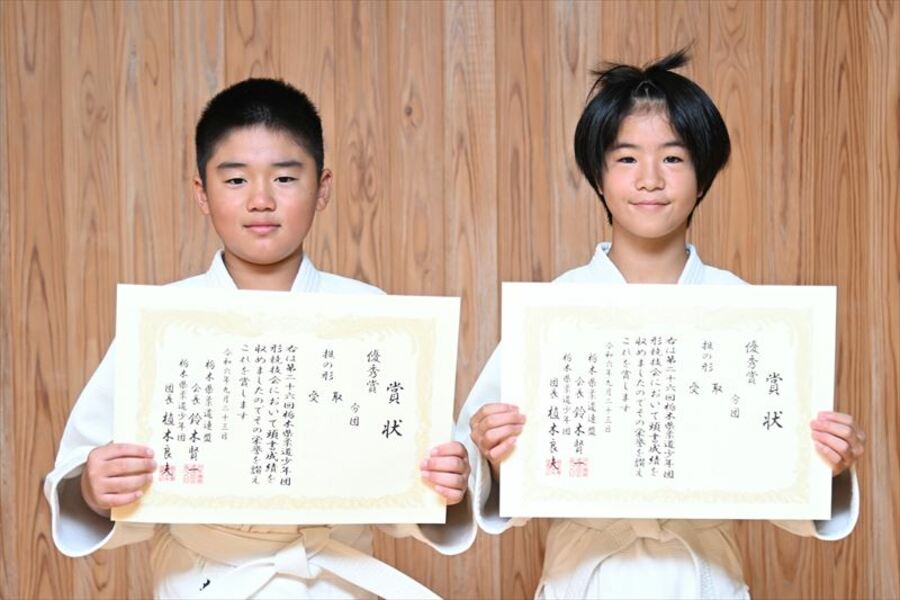 賞状
優秀賞
分団
取
投の形
受
右は第二十六回栃木県柔道少年団
形競技会において頭書成績を
収めましたのでその栄誉を讃え
これを賞します
令和六年九月二十三日
栃木県柔道連盟
会長 鈴木賢一
栃木県柔道少年団
団長 植木良夫
賞状
優秀賞
分団
取
投の形
受
右は第二十六回栃木県柔道少年団
形競技会において頭書成績を
収めましたのでその栄誉を讃え
これを賞します
令和六年九月二十三日
栃木県柔道連盟
会長 鈴木賢一
栃木県柔道少年団
団長 植木良夫